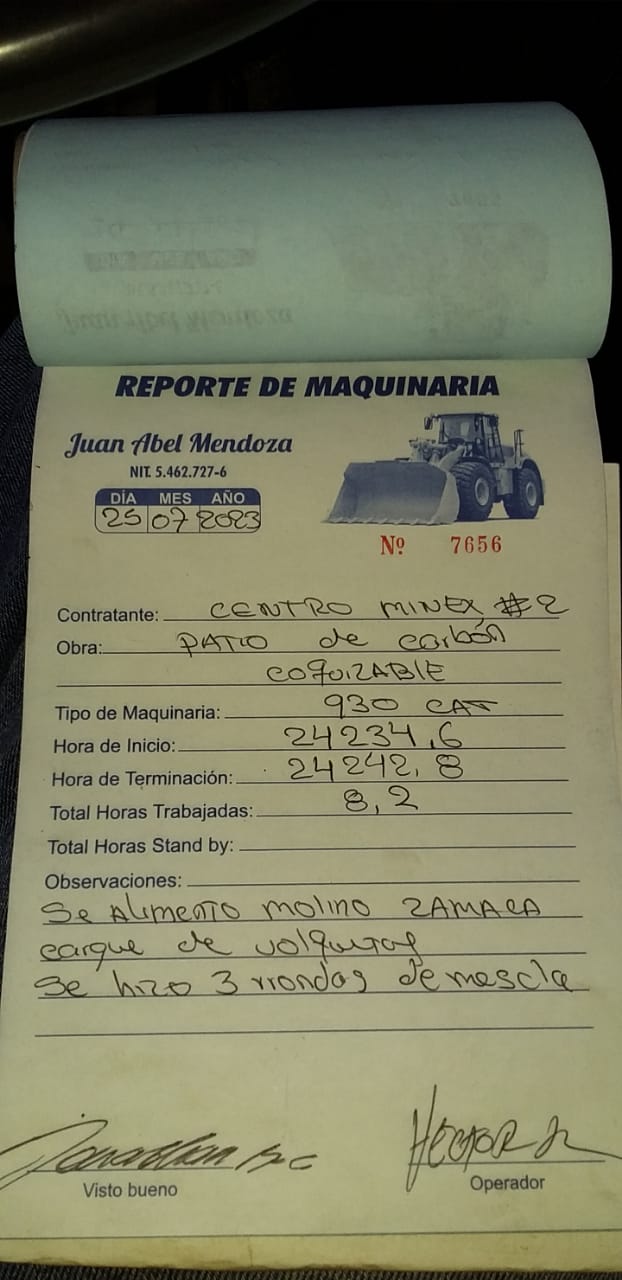 REPORTE DE MAQUINARIA
Juan Abel Mendoza
NIT. 5.462.727-6
DÍA MES AÑO
25 07 2023
Nº 7656
Contratante: CENTRO MINEX #2
Obra: PATIO de carbón
COQUIZABLE
Tipo de Maquinaria: 930 CAT
Hora de Inicio: 24234,6
Hora de Terminación: 24242,8
Total Horas Trabajadas: 8,2
Total Horas Stand by:
Observaciones:
Se Alimento molino
cargue de volquetas
Se hizo 3 rrondas de mescla
Visto bueno
HECTOR
Operador